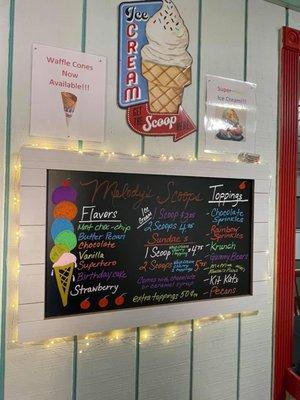 ICE CREAM
Scoop
Waffle Cones
Now
Available!!!
Super
Ice Cream!!!
Melody's Scoops
Flavors
Mint choc. chip
Butter Pecan
Chocolate
Vanilla
Superhero
Birthday cake
Strawberry
Ice Cream
1 Scoop $2
2 Scoops 4
Sundae's
1 Scoop
2 Scoops
Comes with chocolate
or caramel syrup
extra toppings 50¢
Toppings
- Chocolate
Sprinkles
- Rainbow
Sprinkles
- Krunch
- Gummy Bears
- Kit Kats
- Pecans